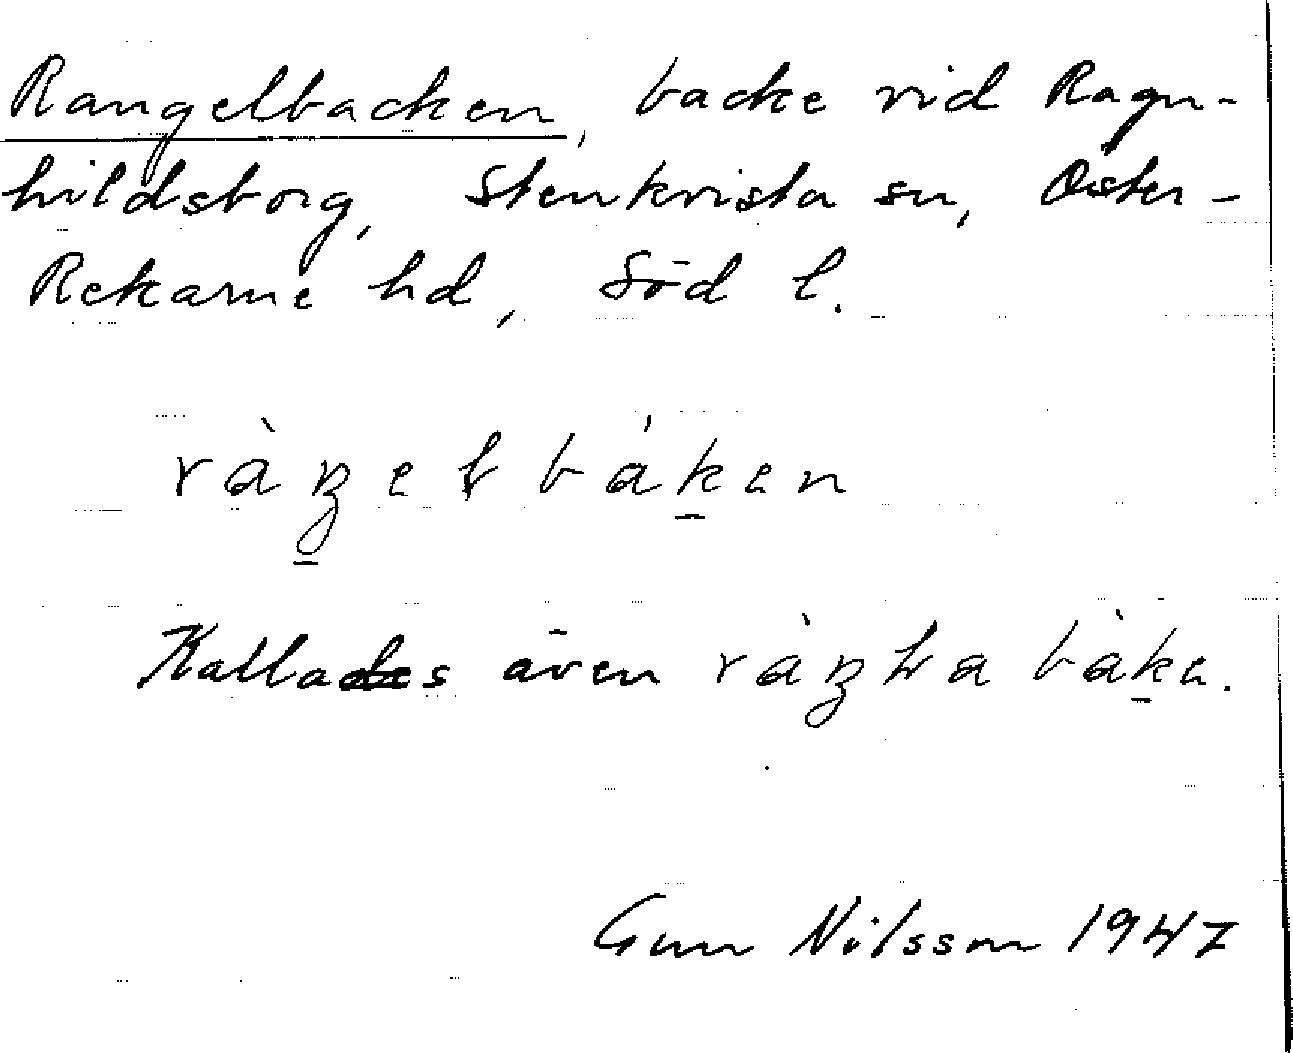 Rangelbacken, backe vid Ragn-
hildsborg, Stenkvista sn, Öster-
Rekarne hd, Söd l.
ràŋ̱elbáḵen
Kallades även ràŋla bàḵe.
Gun Nilsson 1947